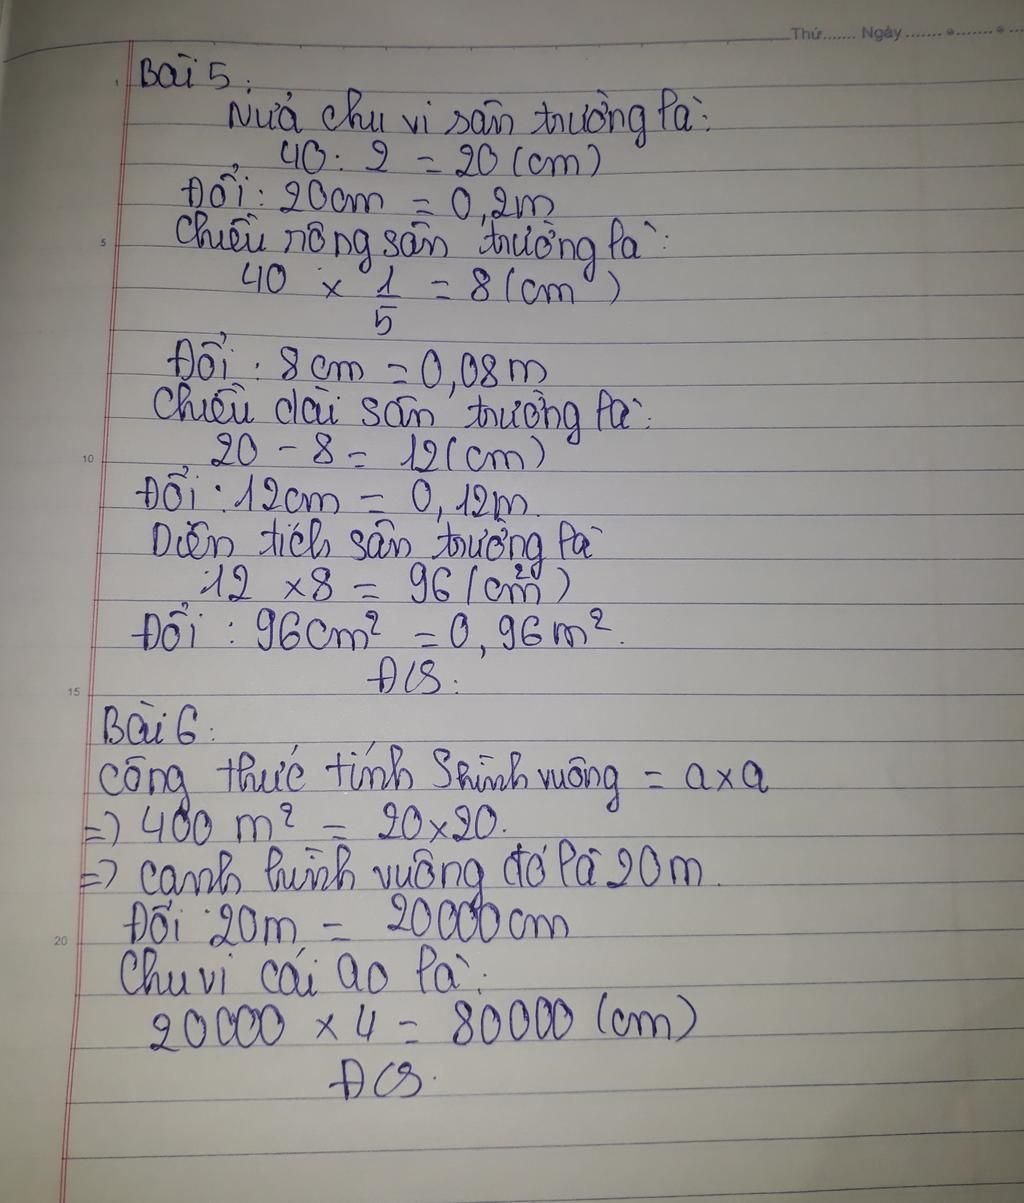 Thứ....... Ngày ....................
Bài 5:
Nửa chu vi sân trường là:
40 : 2 = 20 (cm)
Đổi : 20cm = 0,2m
5
Chiều rông sân trường là:
40 × 1/5 = 8 (cm)
Đổi : 8cm = 0,08m
Chiều dài sân trường là:
10
20 - 8 = 12 (cm)
Đổi : 12cm = 0,12m.
Diên tích sân trường là
12 × 8 = 96 (cm²)
Đổi : 96cm² = 0,96m².
ĐCS.
15
Bài 6:
Công thức tính S hình vuông = a×a
=> 400 m² = 20×20.
=> canh hình vuông đó là 20m.
Đổi : 20m = 20000cm
20
Chu vi cái ao là:
20000 × 4 = 80000 (cm)
ĐCS.